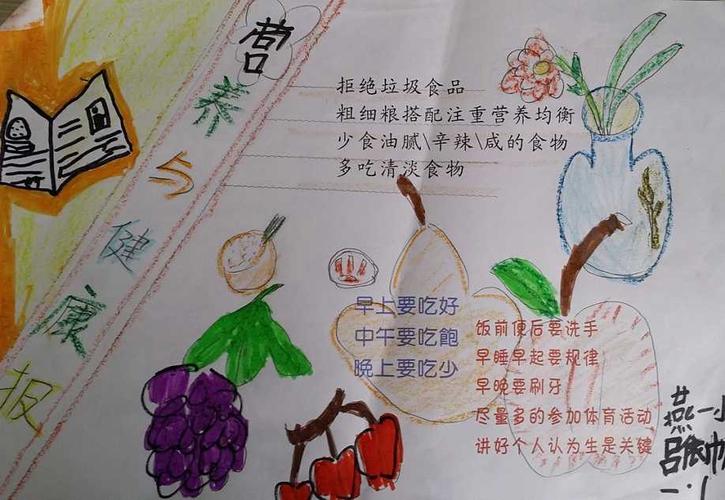 营养与健康报
拒绝垃圾食品
粗细粮搭配注重营养均衡
少食油腻\辛辣\咸的食物
多吃清淡食物
早上要吃好
中午要吃飽
晚上要吃少
饭前便后要洗手
早睡早起要规律
早晚要刷牙
尽量多的参加体育活动
讲好个人认为生是关键
燕一小
一.1